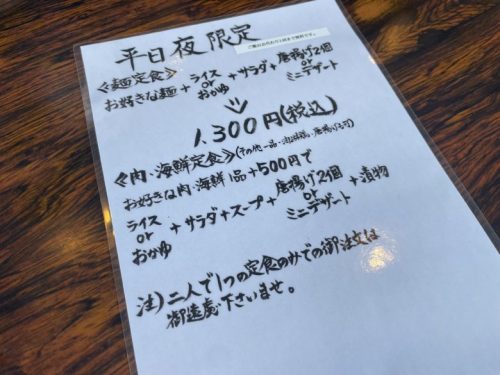 平日夜限定
ご飯のおかわり1杯まで無料です。
≪麺定食≫
お好きな麺+ライスorおかゆ+サラダ+唐揚げ2個orミニデザート
⇓
1,300円(税込)
≪肉・海鮮定食≫(その他一品・油淋鶏、唐揚げも可)
お好きな肉・海鮮1品+500円で
ライスorおかゆ+サラダ+スープ+唐揚げ2個orミニデザート+漬物
注)二人で1つの定食のみでの御注文は
御遠慮下さいませ。